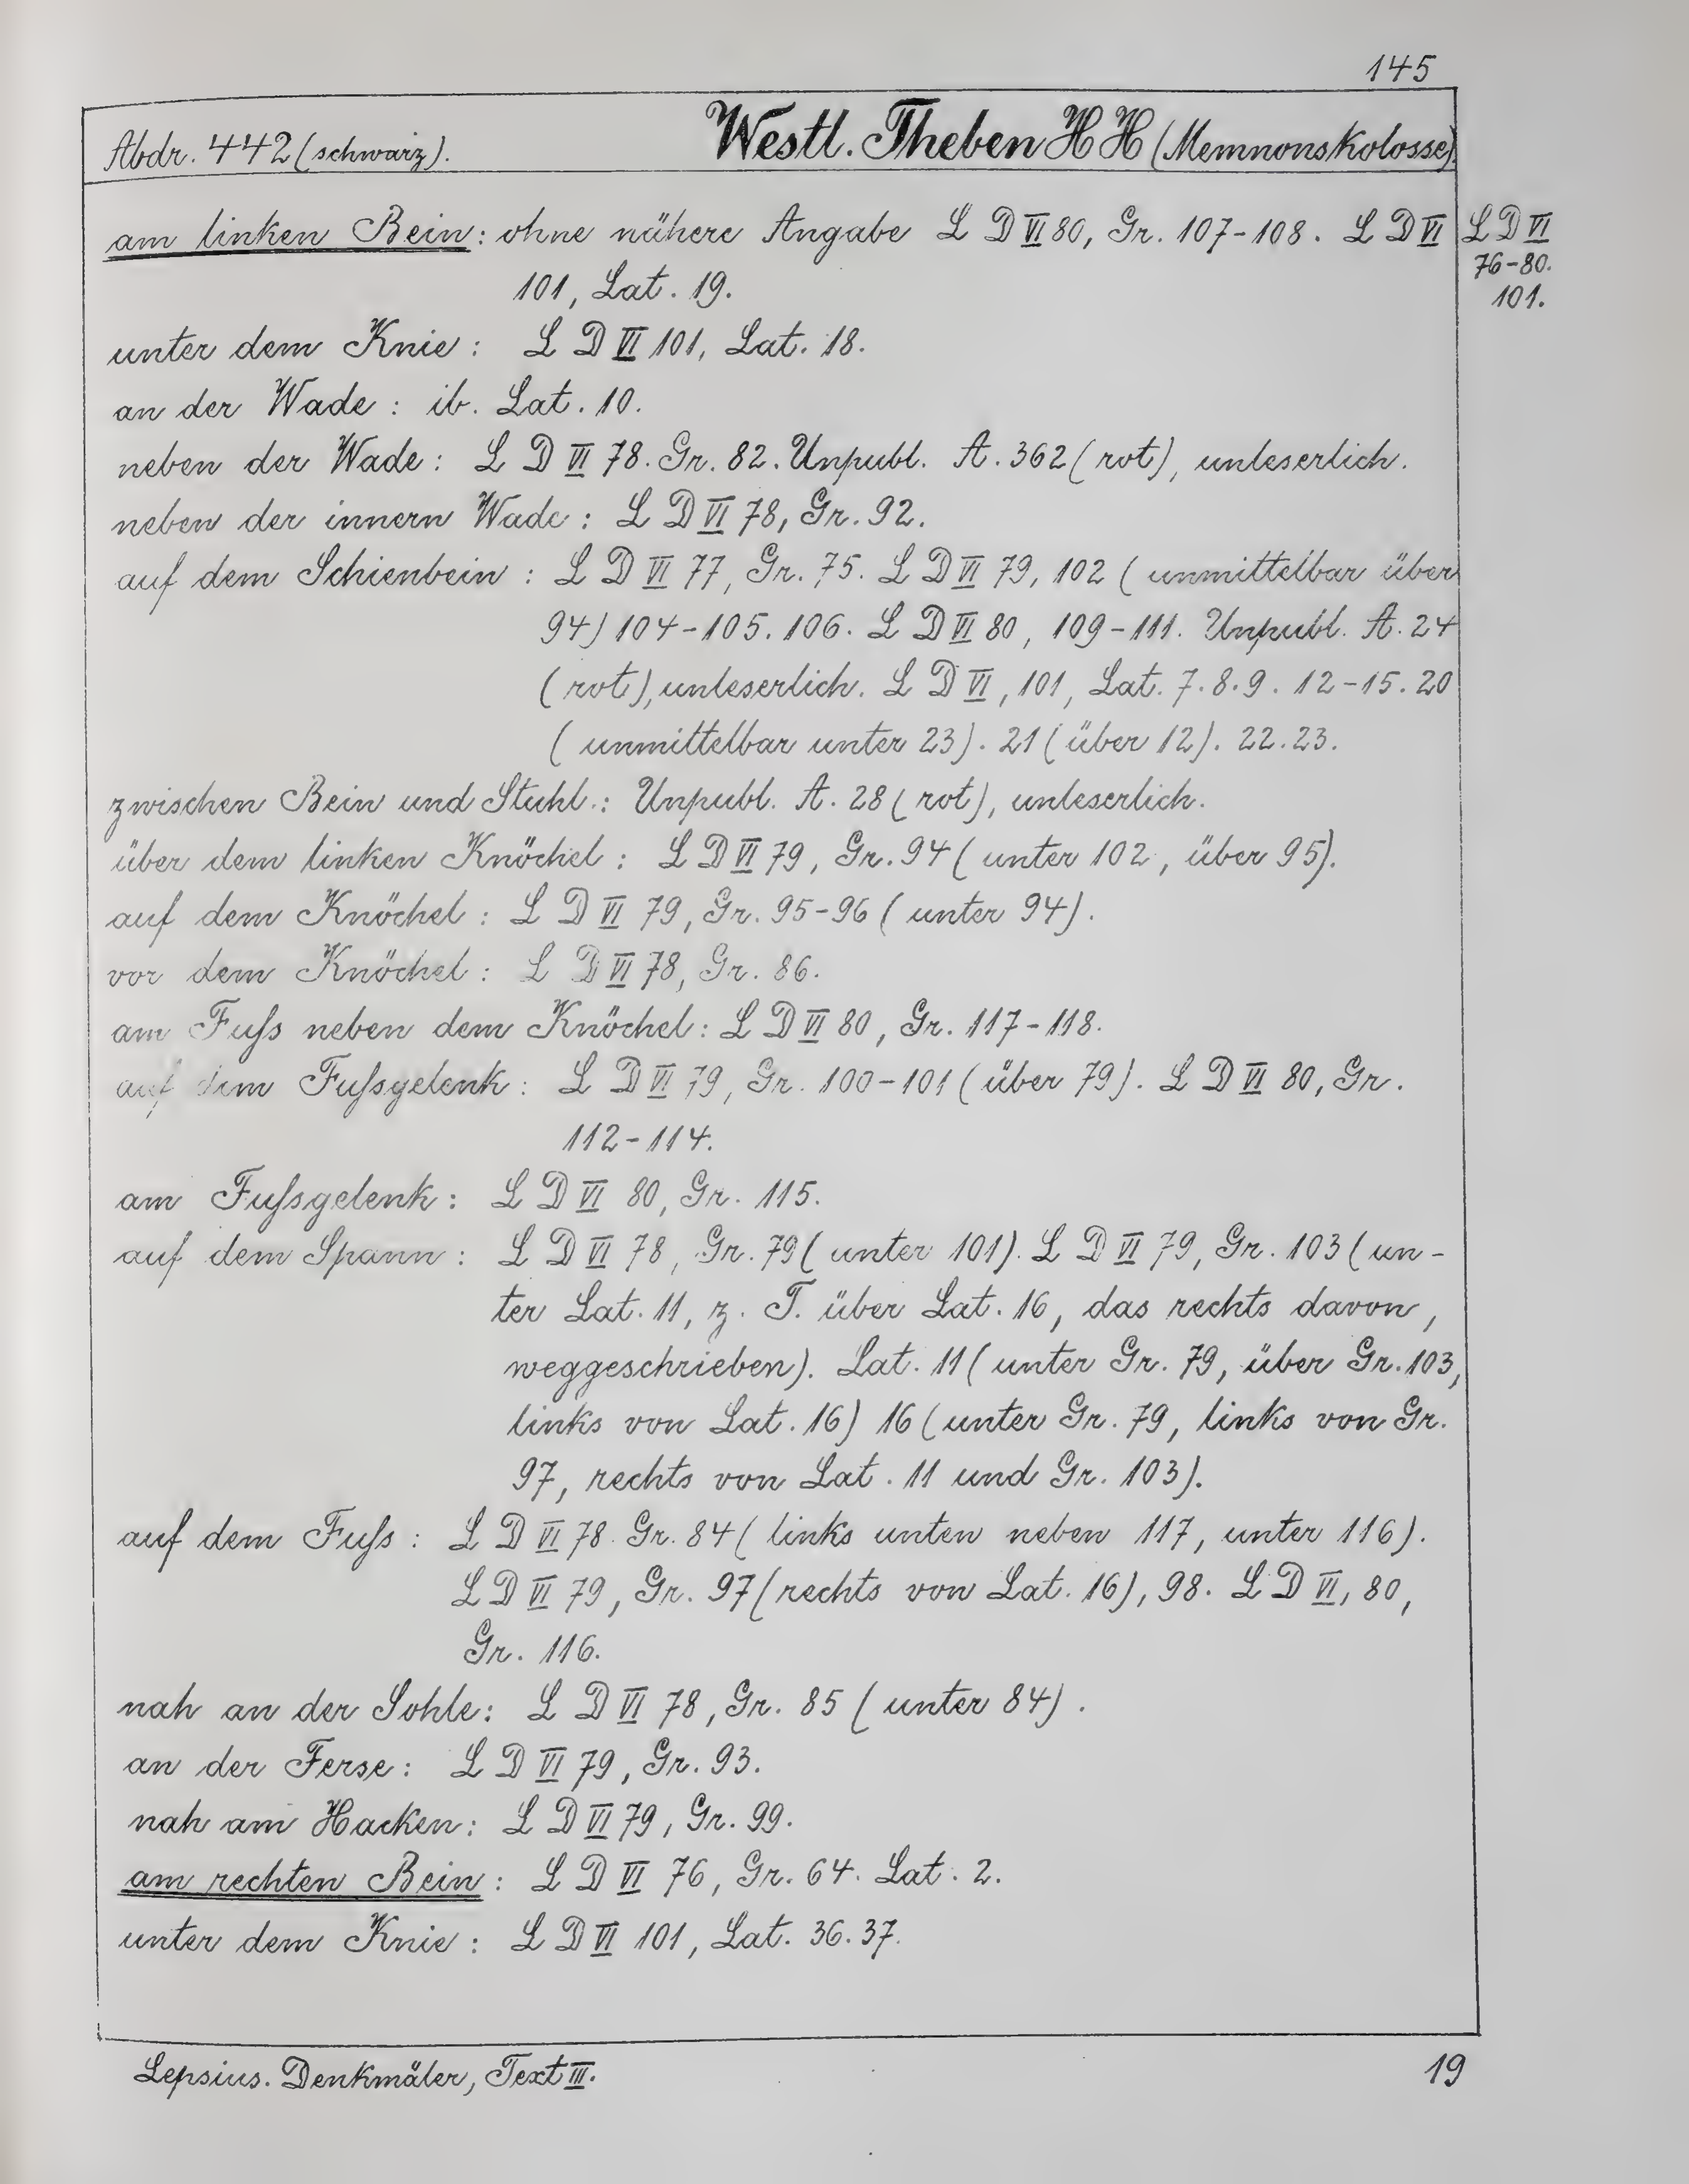 145
Abdr. 442 (schwarz). Westl. Theben H H (Memnonskolosse)
am linken Bein: ohne nähere Angabe L D VI 80, Gr. 107-108. L D VI
101, Lat. 19.
L D VI
76-80.
101.
unter dem Knie: L D VI 101, Lat. 18.
an der Wade: ib. Lat. 10.
neben der Wade: L D VI 78. Gr. 82. Unpubl. A. 362 (rot), unleserlich.
neben der innern Wade: L D VI 78, Gr. 92.
auf dem Schienbein: L D VI 77, Gr. 75. L D VI 79, 102 (unmittelbar über
94) 104-105. 106. L D VI 80, 109-111. Unpubl. A. 24
(rot), unleserlich. L D VI, 101, Lat. 7. 8. 9. 12-15. 20
(unmittelbar unter 23). 21 (über 12). 22. 23.
zwischen Bein und Stuhl.: Unpubl. A. 28 (rot), unleserlich.
über dem linken Knöchel: L D VI 79, Gr. 94 (unter 102, über 95).
auf dem Knöchel: L D VI 79, Gr. 95-96 (unter 94).
vor dem Knöchel: L D VI 78, Gr. 86.
am Fuſs neben dem Knöchel: L D VI 80, Gr. 117-118.
auf dem Fuſsgelenk: L D VI 79, Gr. 100-101 (über 79). L D VI 80, Gr.
112-114.
am Fuſsgelenk: L D VI 80, Gr. 115.
auf dem Spann: L D VI 78, Gr. 79 (unter 101). L D VI 79, Gr. 103 (un-
ter Lat. 11, z. T. über Lat. 16, das rechts davon,
weggeschrieben). Lat. 11 (unter Gr. 79, über Gr. 103,
links von Lat. 16) 16 (unter Gr. 79, links von Gr.
97, rechts von Lat. 11 und Gr. 103).
auf dem Fuſs: L D VI 78. Gr. 84 (links unten neben 117, unter 116).
L D VI 79, Gr. 97 (rechts von Lat. 16), 98. L D VI, 80,
Gr. 116.
nah an der Sohle: L D VI 78, Gr. 85 (unter 84).
an der Ferse: L D VI 79, Gr. 93.
nah am Hacken: L D VI 79, Gr. 99.
am rechten Bein: L D VI 76, Gr. 64. Lat. 2.
unter dem Knie: L D VI 101, Lat. 36. 37.
Lepsius. Denkmäler, Text III.
19